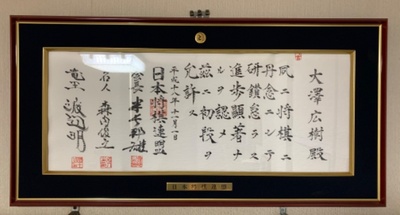 大澤広樹殿
夙ニ将棋ニ
丹念ニシテ
研鑽怠ラス
進歩顕著ナ
ルヲ認メ
茲ニ初段ヲ
允許ス
平成十八年十一月一日
日本将棋連盟
会長 米長邦雄
名人 森内俊之
竜王 渡辺明